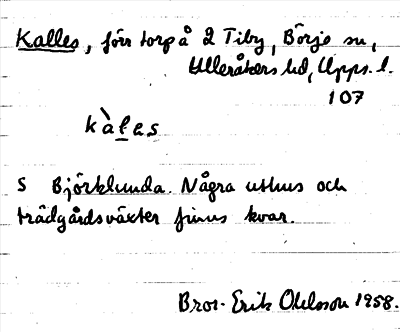 Kalles, förr torp å 2 Tiby, Börje sn,
Ulleråkers hd, Upps. l.
107
kàles
S Björklunda. Några uthus och
trädgårdsväxter finns kvar.
Bror-Erik Ohlsson 1958.